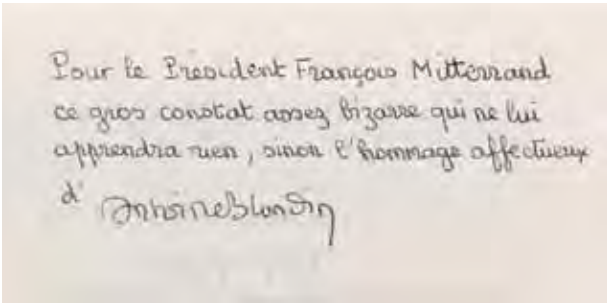 Pour le Président François Mitterrand
ce gros constat assez bizarre qui ne lui
apprendra rien, sinon l'hommage affectueux
d' Antoine Blondin